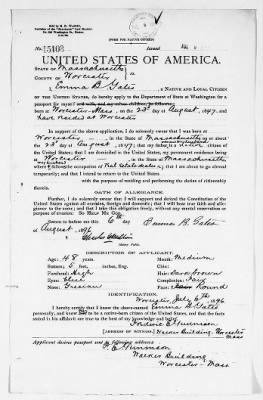 [FORM FOR NATIVE CITIZEN.]
No. 15103 Issued
UNITED STATES OF AMERICA.
STATE OF Massachusetts
COUNTY OF Worcester
I, Emma B. Gates, A NATIVE AND LOYAL CITIZEN
OF THE UNITED STATES, do hereby apply to the Department of State at Washington for a
passport for myself
born at Worcester Mass on the 23d day of August, 1847, and
have resided at Worcester
In support of the above application, I do solemnly swear that I was born at
Worcester in the State of Massachusetts on or about the
23d day of August, 1847; that my father is a citizen of the
United States; that I am domiciled in the United States, my permanent residence being
at Worcester in the State of Massachusetts
where the occupation of Real Estate; that I am about to go abroad
temporarily; and that I intend to return to the United States
with the purpose of residing and performing the duties of citizenship therein.
OATH OF ALLEGIANCE.
Further, I do solemnly swear that I will support and defend the Constitution of the
United States against all enemies, foreign and domestic; that I will bear true faith and alle-
giance to the same; and that I take this obligation freely, without any mental reservation or
purpose of evasion: SO HELP ME GOD.
Sworn to before me this 6 day
of August 1896
Emma B. Gates
Notary Public.
DESCRIPTION OF APPLICANT.
Age: 48 years. Mouth: Medium
Stature: 5 feet, inches, Eng. Chin:
Forehead: High Hair: Brown
Eyes: Blue Complexion: Fair
Nose: Grecian Face: Round
IDENTIFICATION.
Worcester, July 6th 1896
I hereby certify that I know the above-named Emma B. Gates
personally, and know her to be a native-born citizen of the United States, and that the facts
stated in his affidavit are true to the best of my knowledge and belief.
[ADDRESS OF WITNESS] Walker Building, Worcester
Mass
Applicant desires passport sent to following address:
Walker Building
Worcester Mass